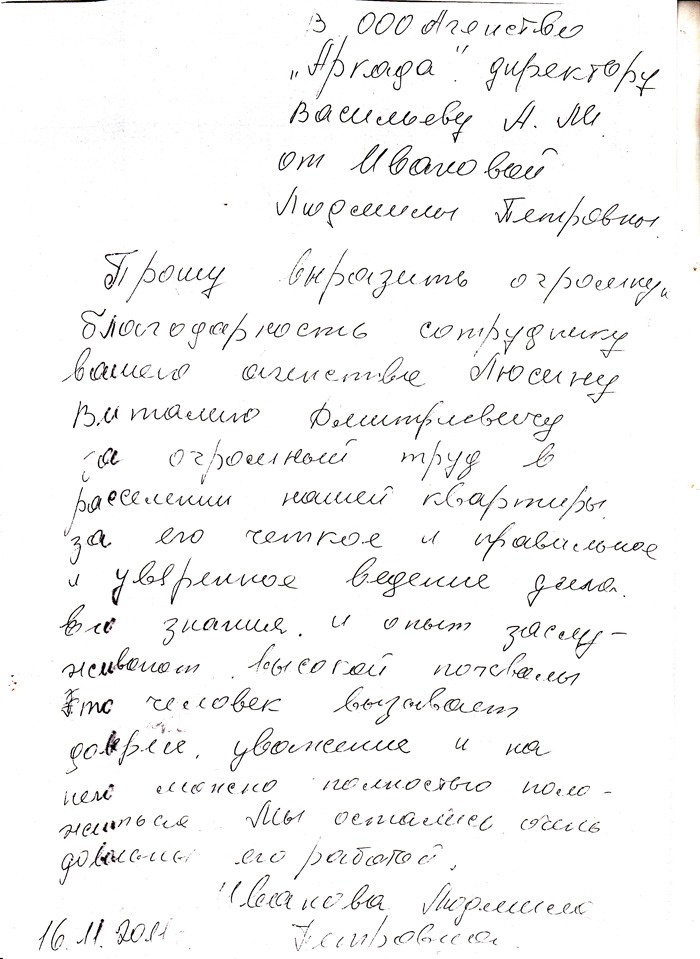 В ООО Агенство
„Аркада". директору
Васильеву А. М.
от Ивановой
Людмилы Петровны.
Прошу выразить огромную
благодарность сотруднику
вашего агенства Люсину
Виталию Дмитриевичу
за огромный труд в
расселении нашей квартиры.
за его четкое и правильное
и уверенное ведение дела.
Его знания и опыт заслу-
живают высокой похвалы
Это человек вызывает
доврие, уважение и на
него можно полностью поло-
житься. Мы остались очень
довольны его работой.
Иванова Людмила
16.11.2011 Петровна.